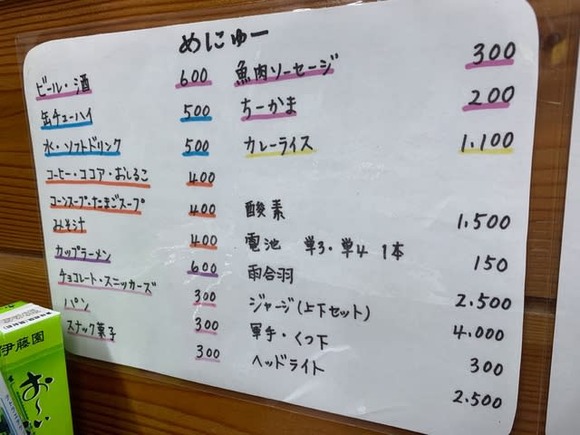 めにゅー
ビール・酒 600
缶チューハイ 500
水・ソフトドリンク 500
コーヒー・ココア・おしるこ 400
コーンスープ・たまごスープ 400
みそ汁 400
カップラーメン 600
チョコレート・スニッカーズ 300
パン 300
スナック菓子 300
魚肉ソーセージ 300
ちーかま 200
カレーライス 1.100
酸素 1.500
電池 単3・単4 1本 150
雨合羽 2.500
ジャージ(上下セット) 4.000
軍手・くつ下 300
ヘッドライト 2.500
伊藤園
お〜い